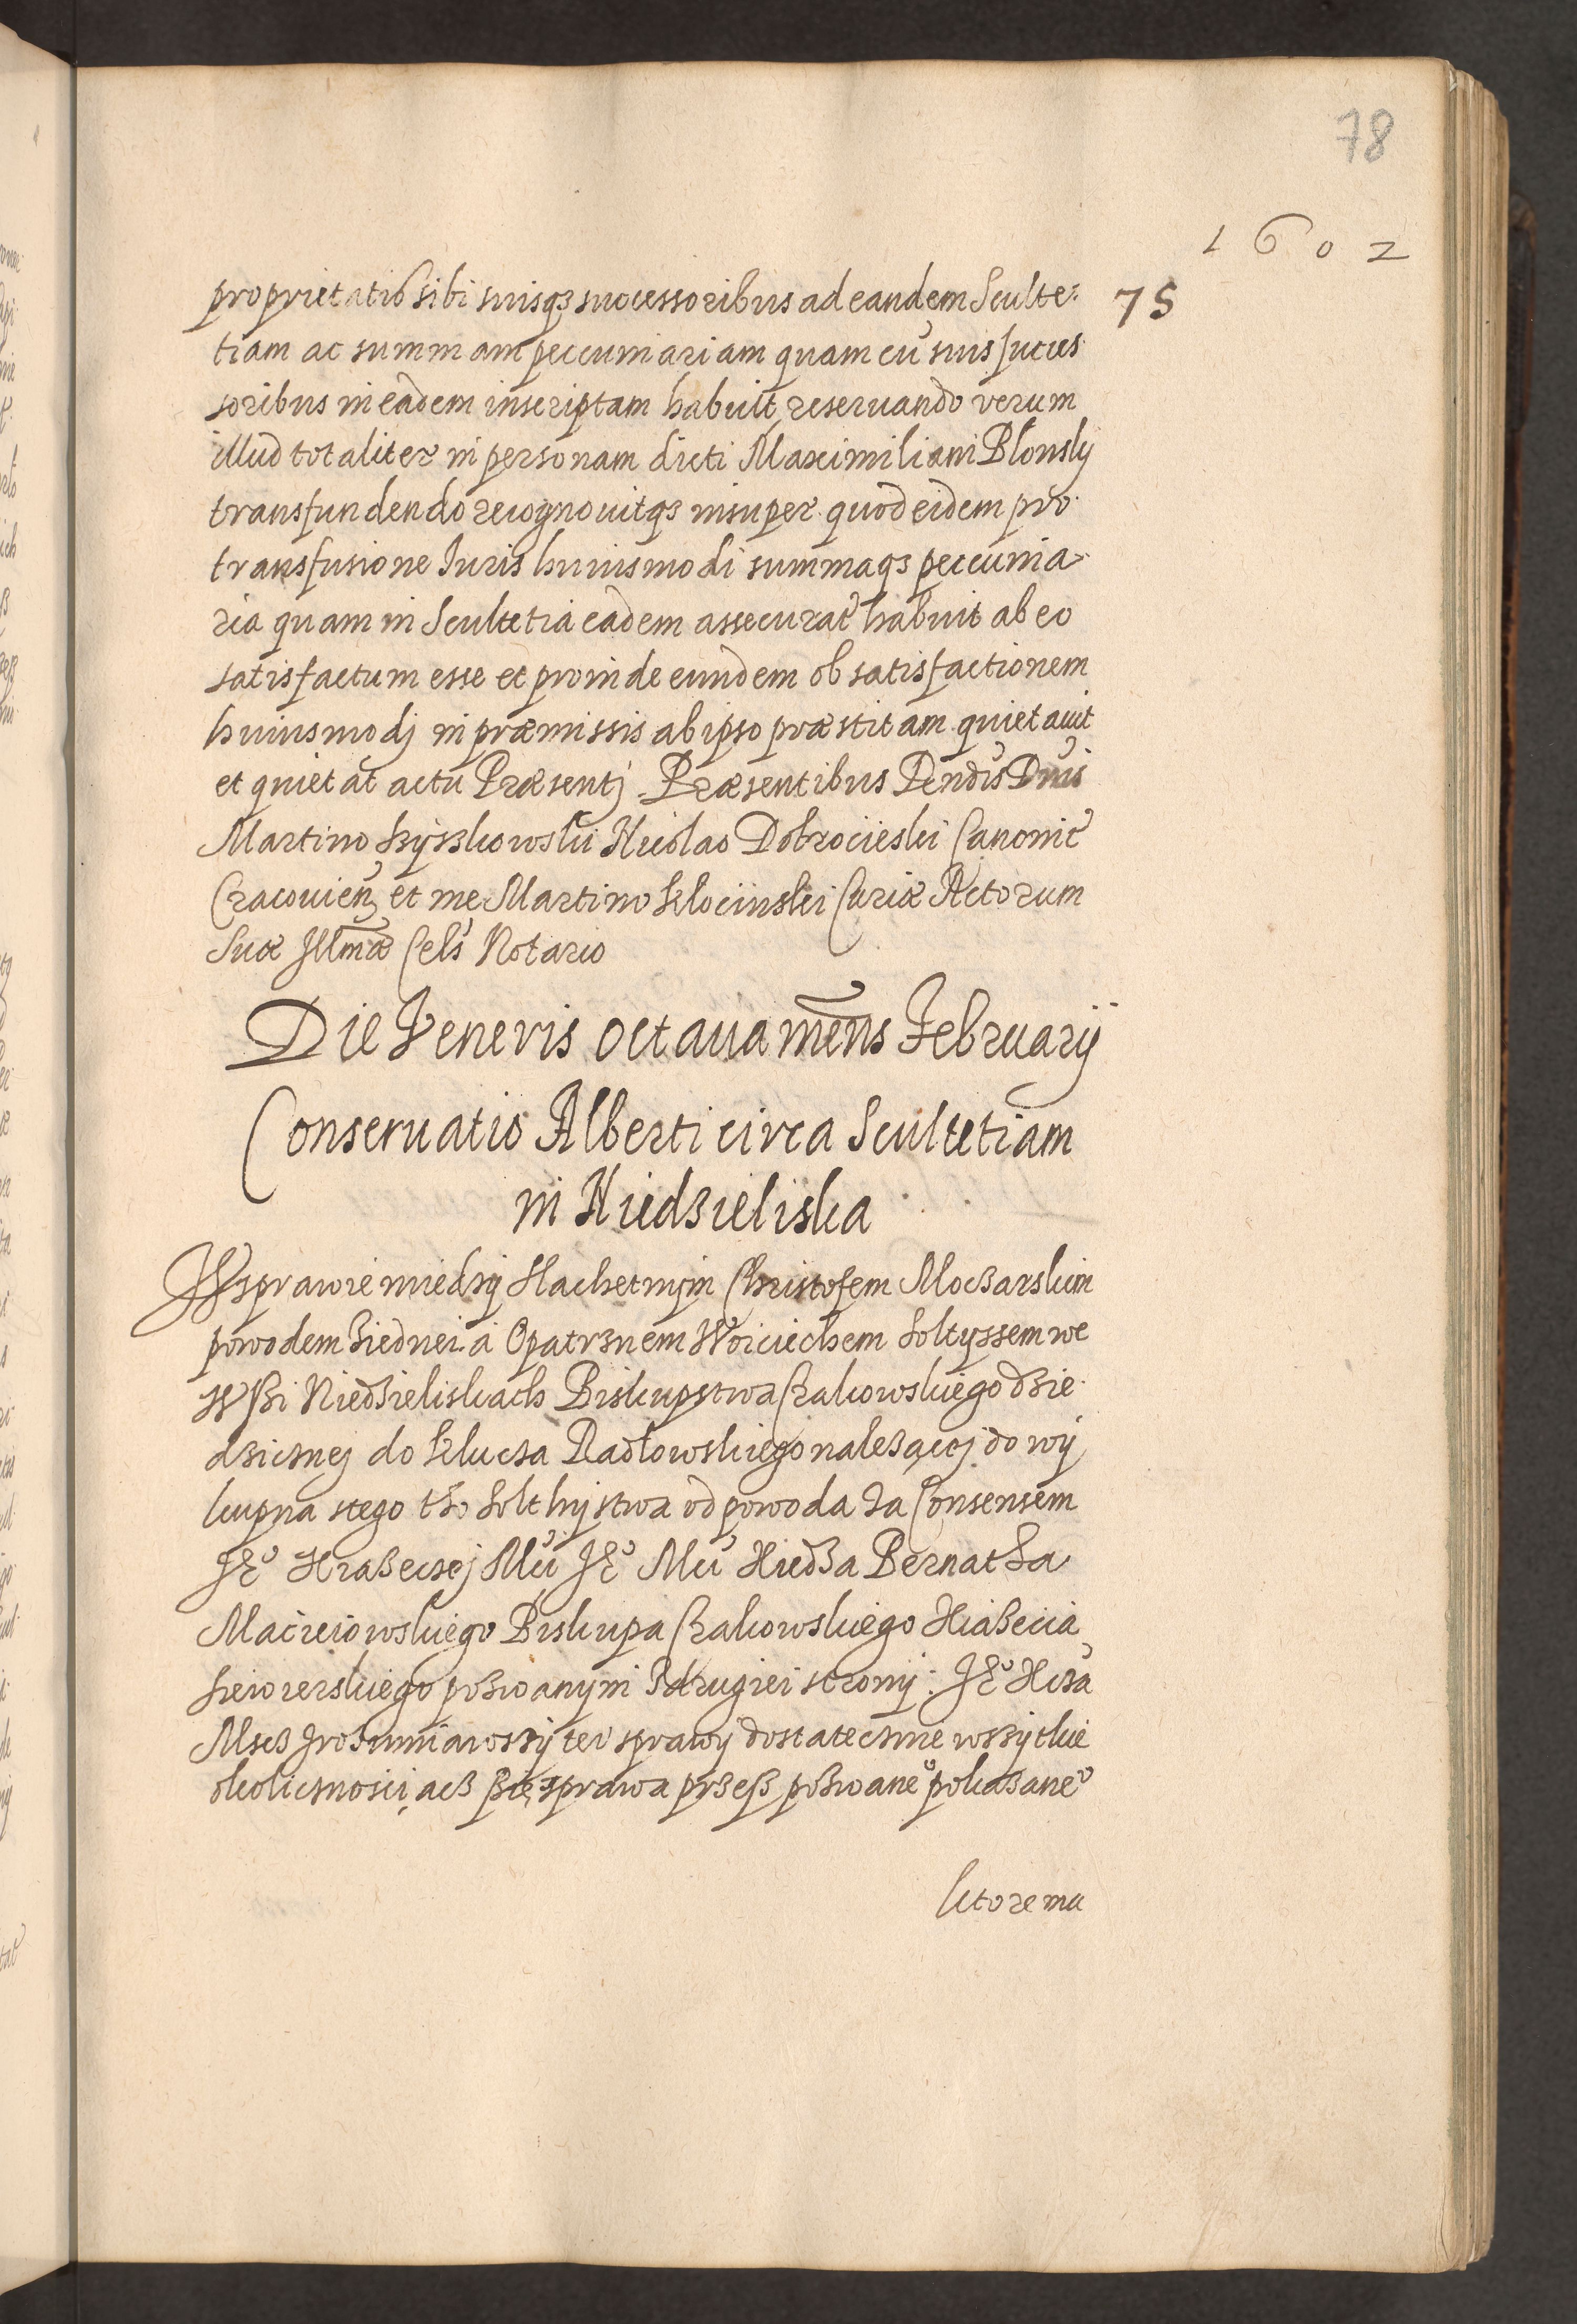 78
1602
proprietatis sibi suisqꝫ successoribus ad eandem Sculte-
75
tiam ac summam peccuniariam quam cũ suis succes
soribus in eadem inscriptam habuit reseruando verum
illud totaliter in personam dicti Maximiliani Błonsky
transfundendo recognouitqꝫ insuper quod eidem pro
transfusione Iuris huiusmodi summaqꝫ peccunia-
ria quam in Scultetia eadem assecurat habuit ab eo
satisfactum esse et proinde eundem ob satisfactionem
huiusmodj in præmissis ab ipso præstitam quietauit
et quietat actu Præsentj. Præsentibus Rendis Dnis
Martino Szyszkowski Nicolao Dobrocieski Canonic
Cracouien et me Martino Kłocinski Curiæ Actorum
Suæ Illmæ Cels Notario
Die Veneris octaua mens Februarij
Conseruatio Alberti circa Scultetiam
in Niedzieliska
W sprawie miedzy Slachetnym Christofem Moczarskim
powodem ziednei a Opatrznem Woiciechem Soltyssem we
Wsi Niedzieliskach Biskupstwa Krakowskiego dzie
dzicznej do klucza Radłowskiego należącej do wy
kupna stego tho Solthystwa od powoda za Consensem
Je° Xiażeczej Mci Je° Mci Xiedza Bernatha
Macieiowskiego Biskupa Krakowskiego Xiażecia
Siewierskiego pozwanym zdrugiei strony: Je° Xcza
Mscz zrozumiawszy tei sprawy dostatecznie wszytkie
okolicznosci, acz sie sprawa przesz pozwane° pokazane°
ktorema